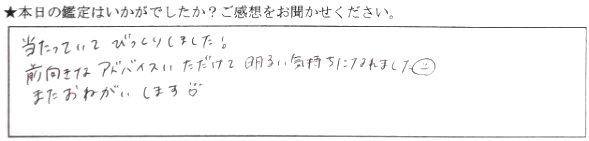 ★本日の鑑定はいかがでしたか？ご感想をお聞かせください。
当たっていて びっくりしました!
前向きな アドバイスいただけて 明るい気持ちになれました
またおねがいします